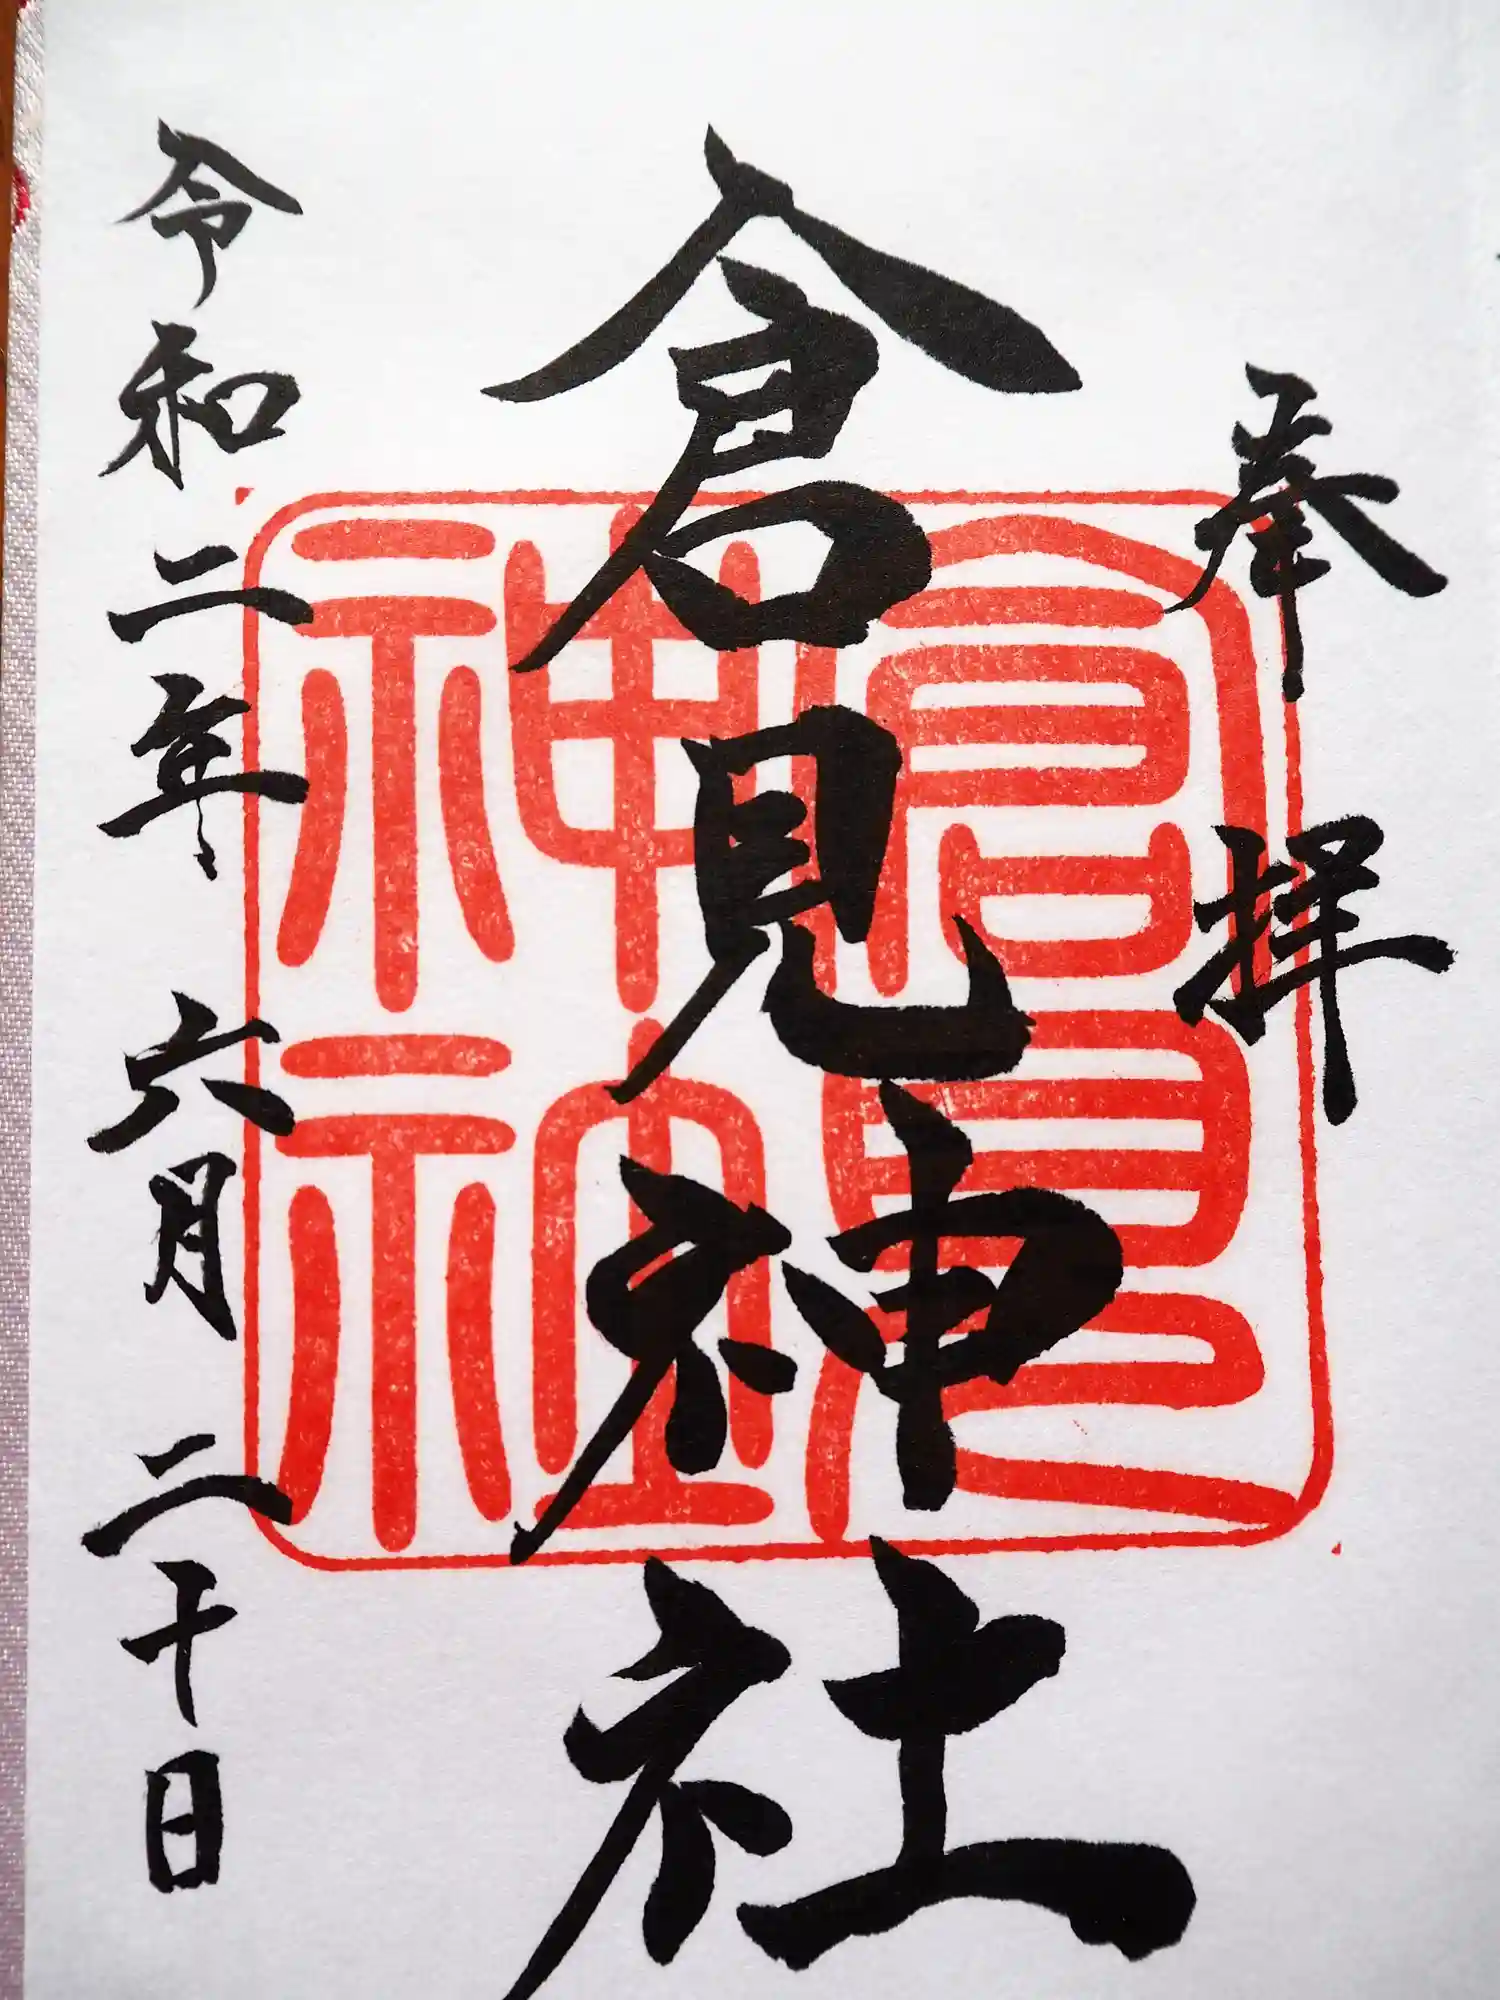 奉拝
倉見神社
倉見
神社
令和二年六月二十日